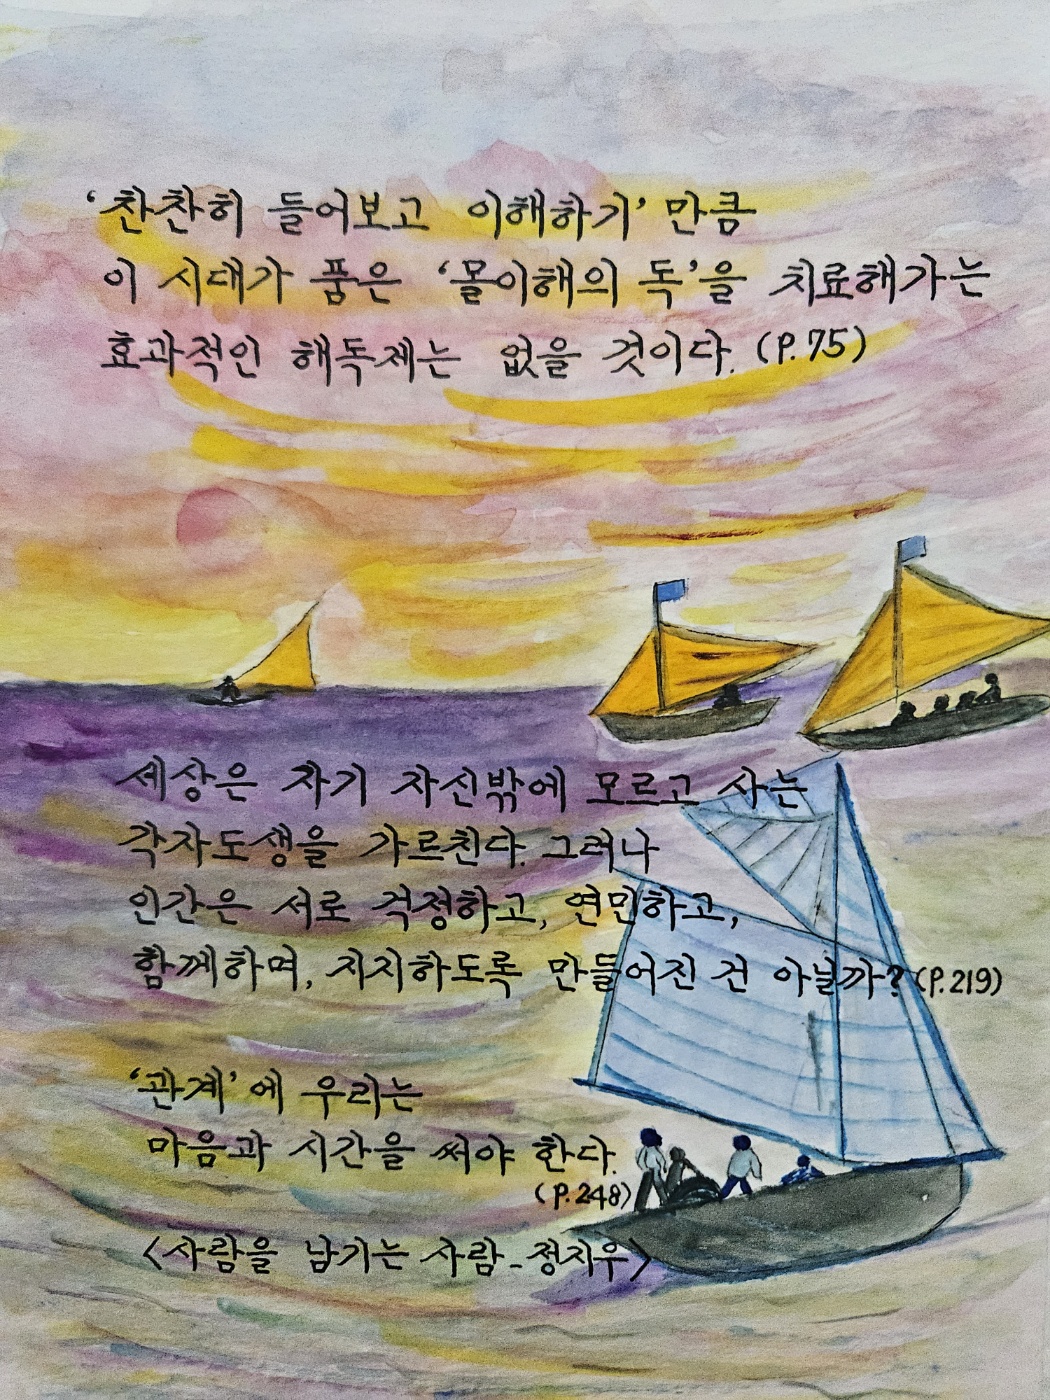 ‘찬찬히 들어보고 이해하기’ 만큼
이 시대가 품은 ‘몰이해의 독’을 치료해가는
효과적인 해독제는 없을 것이다. (P.75)
세상은 자기 자신밖에 모르고 사는
각자도생을 가르친다. 그러나
인간은 서로 걱정하고, 연민하고,
함께하며, 지지하도록 만들어진 건 아닐까? (P.219)
‘관계’에 우리는
마음과 시간을 써야 한다.
(P.248)
<사람을 남기는 사람 - 정지우>